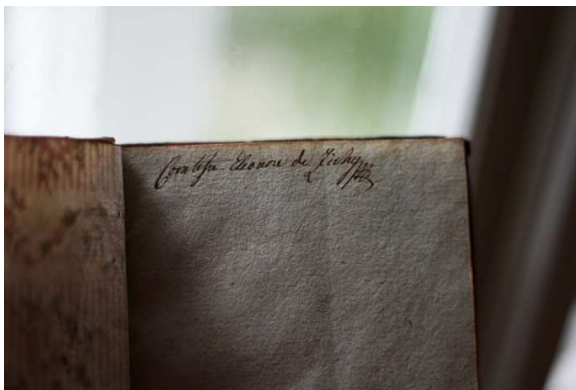 Comtesse Eleonore de Zichy